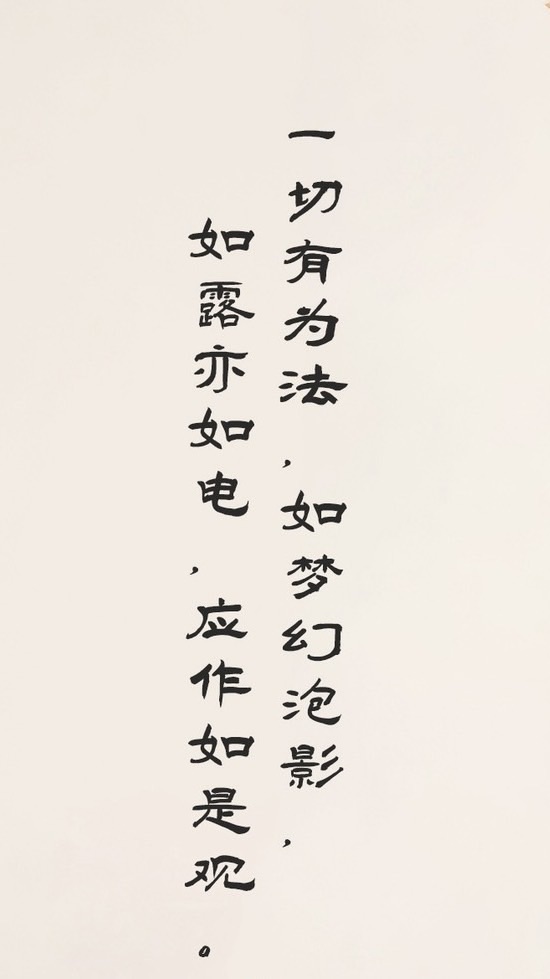 一切有为法，如梦幻泡影，
如露亦如电，应作如是观。